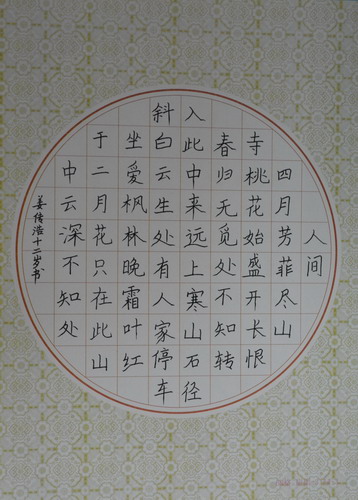 人间
四月芳菲尽山
寺桃花始盛开长恨
春归无觅处不知转
入此中来远上寒山石径
斜白云生处有人家停车
坐爱枫林晚霜叶红
于二月花只在此山
中云深不知处
姜传浩十二岁书